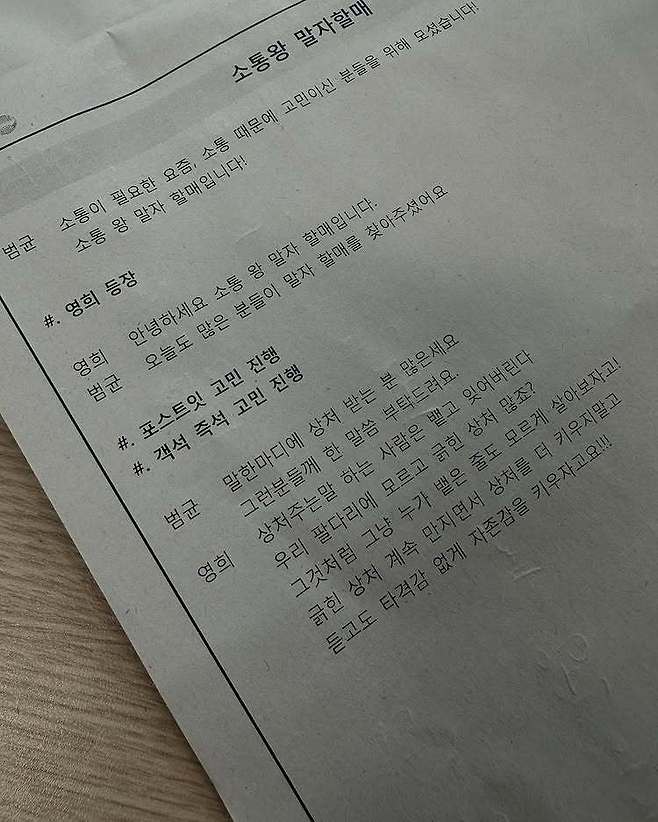 소통왕 말자할매
범균 소통이 필요한 요즘, 소통 때문에 고민이신 분들을 위해 모셨습니다!
소통 왕 말자 할매입니다!
#. 영희 등장
영희 안녕하세요 소통 왕 말자 할매입니다.
범균 오늘도 많은 분들이 말자 할매를 찾아주셨어요
#. 포스트잇 고민 진행
#. 객석 즉석 고민 진행
범균 말한마디에 상처 받는 분 많은세요
그런분들께 한 말씀 부탁드려요.
영희 상처주는말 하는 사람은 뱉고 잊어버린다
우리 팔다리에 모르고 긁힌 상처 많죠?
그것처럼 그냥 누가 뱉은 줄도 모르게 살아보자고!
긁힌 상처 계속 만지면서 상처를 더 키우지말고
듣고도 타격감 없게 자존감을 키우자고요!!!